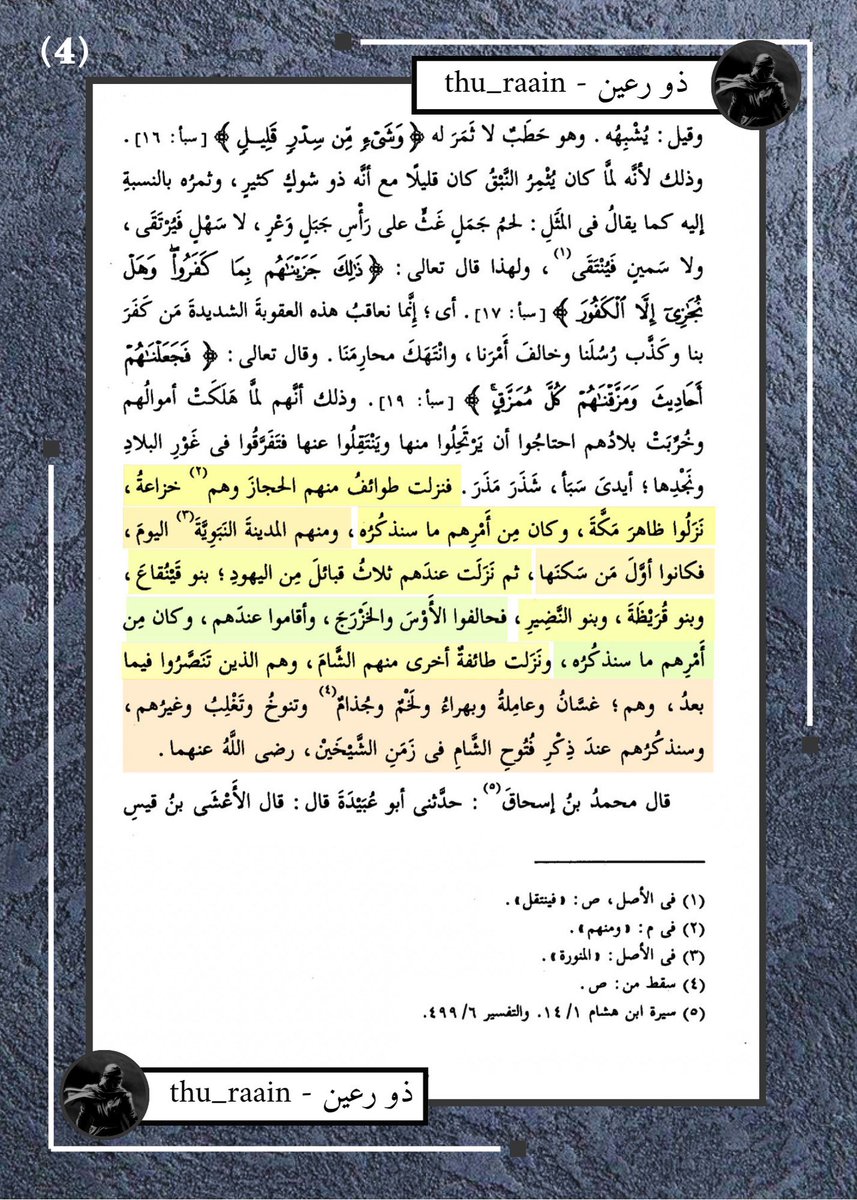 (4)
thu_raain - ذو رعين
وقيل : يُشْبِهُه . وهو حَطَبٌ لا ثَمَرَ له ﴿ وَشَىْءٍ مِّن سِدْرٍ قَلِيلٍ ﴾ [سبأ: ١٦] .
وذلك لأنَّه لمَّا كان يُثْمِرُ النَّبْقُ كان قليلًا مع أنَّه ذو شوكٍ كثيرٍ ، وثمرُه بالنسبةِ
إليه كما يقالُ فى المثَلِ : لحمُ جَمَلٍ غَثٍّ على رَأْسِ جَبَلٍ وَعْرٍ ، لا سَهْلٍ فَيُرْتَقَى ،
ولا سَمينٍ فَيُنْتَقَى(١) ، ولهذا قال تعالى : ﴿ ذَٰلِكَ جَزَيْنَٰهُم بِمَا كَفَرُوا۟ۖ وَهَلْ
نُجَٰزِىٓ إِلَّا ٱلْكَفُورَ ﴾ [سبأ: ١٧] . أى ؛ إنَّما نعاقبُ هذه العقوبةَ الشديدةَ مَن كَفَرَ
بنا وكَذَّب رُسُلَنا وخالفَ أَمْرَنا ، وانْتَهَكَ محارِمَنَا . وقال تعالى : ﴿ فَجَعَلْنَٰهُمْ
أَحَادِيثَ وَمَزَّقْنَٰهُمْ كُلَّ مُمَزَّقٍۚ ﴾ [سبأ: ١٩] . وذلك أنَّهم لمَّا هَلَكَتْ أموالُهم
وخُرِّبَتْ بلادُهم احتاجُوا أن يَرْتَحِلُوا منها ويَنْتَقِلُوا عنها فتَفَرَّقُوا فى غَوْرِ البلادِ
ونَجْدِها ؛ أيدىَ سَبَأ ، شَذَرَ مَذَرَ . فنزلت طوائفُ منهم الحجازَ وهم(٢) خزاعةُ ،
نَزَلُوا ظاهرَ مَكَّةَ ، وكان مِن أَمْرِهم ما سنذكُرُه ، ومنهم المدينةَ النَبَوِيَّةَ(٣) اليومَ ،
فكانوا أوَّلَ مَن سَكنَها ، ثم نَزَلَت عندَهم ثلاثُ قبائلَ مِن اليهودِ ؛ بنو قَيْنُقاعَ ،
وبنو قُرَيْظَةَ ، وبنو النَّضِيرِ ، فحالفوا الأَوْسَ والخَزْرَجَ ، وأقاموا عندَهم ، وكان مِن
أَمْرِهم ما سنذكُرُه ، ونَزَلت طائفةٌ أخرى منهم الشَّامَ ، وهم الذين تَنَصَّرُوا فيما
بعدُ ، وهم ؛ غسَّانُ وعامِلةُ وبهراءُ ولَخْمٌ وجُذامٌ(٤) وتنوخُ وتَغْلِبُ وغيرُهم ،
وسنذكُرُهم عندَ ذِكْرِ فُتُوحِ الشامِ فى زَمَنِ الشَّيْخَيْن ، رضى اللَّهُ عنهما .
قال محمدُ بنُ إسحاقَ(٥) : حدَّثنى أبو عُبَيْدَةَ قال : قال الأَعْشَى بنُ قيسِ
(١) فى الأصل ، ص : «فينتقل» .
(٢) فى م : «ومنهم» .
(٣) فى الأصل : «المنورة» .
(٤) سقط من : ص .
(٥) سيرة ابن هشام ١/ ١٤. والتفسير ٦/ ٤٩٩.
thu_raain - ذو رعين